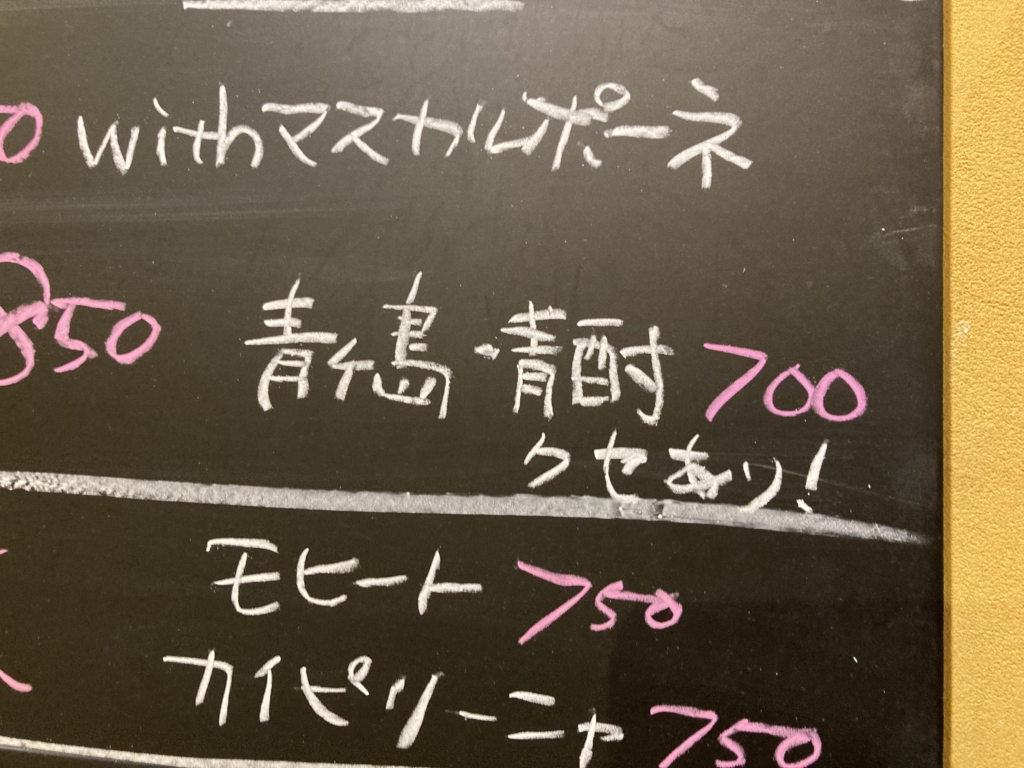 withマスカルポーネ
850 青ヶ島・青酎 700
クセあり!
モヒート 750
カイピリーニャ 750